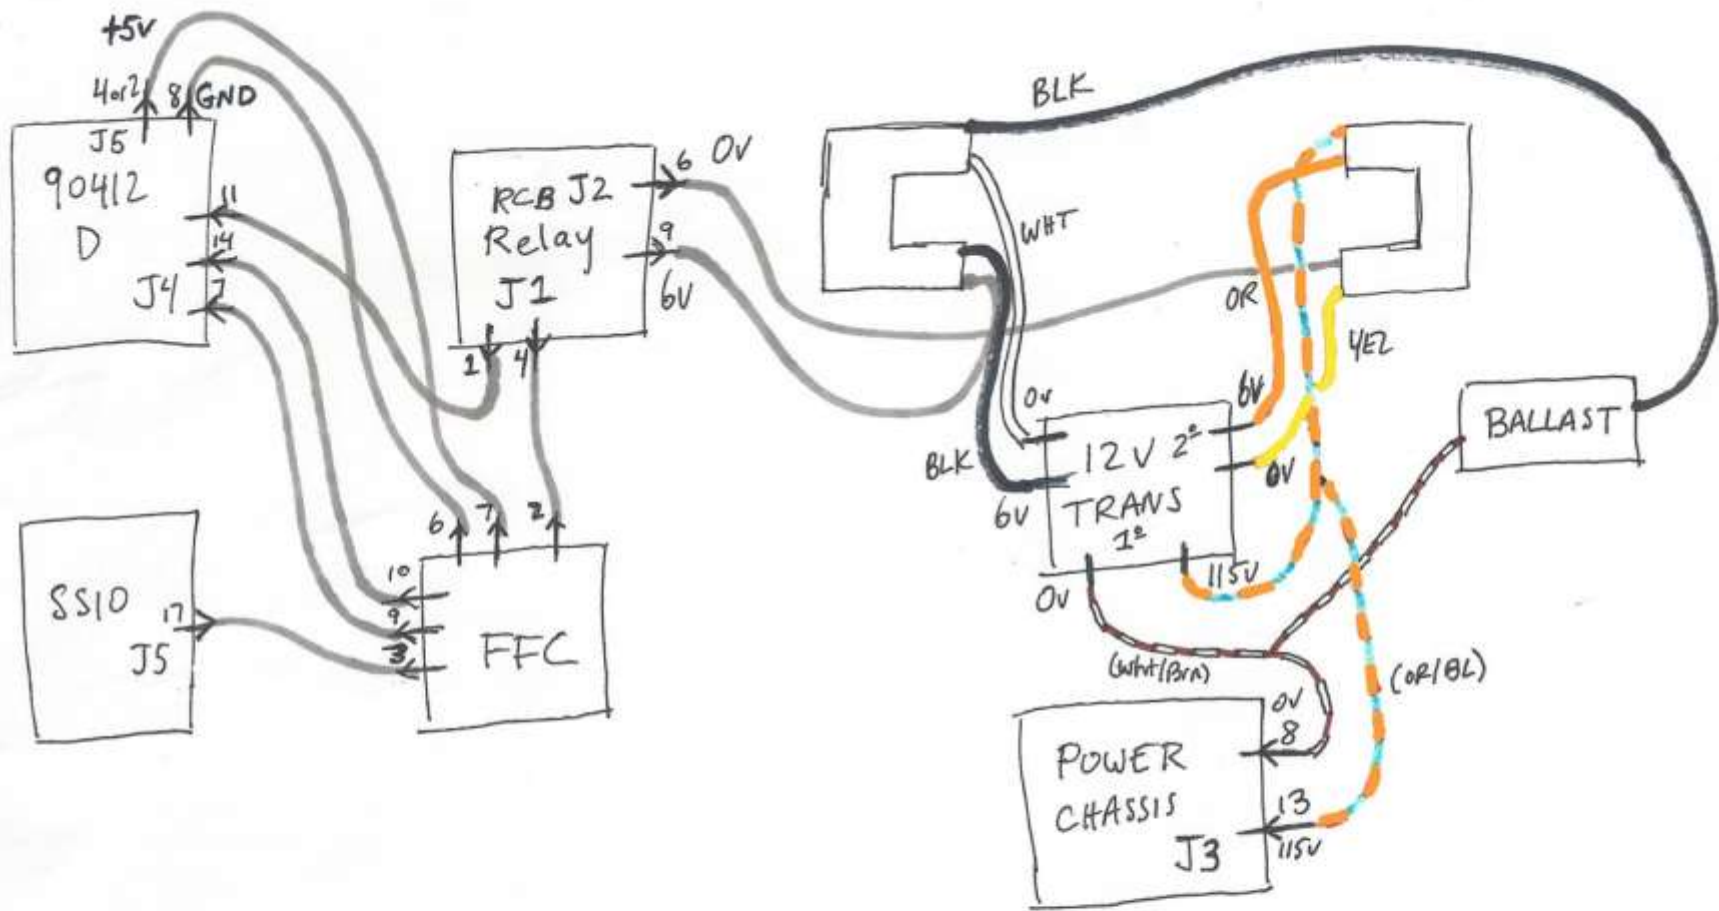 +5V
4 or 2
8
GND
J5
90412
D
11
14
7
J4
RCB J2
Relay
J1
6
0V
9
6V
1
4
BLK
WHT
OR
YEL
0V
6V
12V 2°
TRANS
1°
BLK
6V
0V
0V
115V
BALLAST
6
7
2
10
9
3
FFC
SSIO
17
J5
(Wht/Brn)
(OR/BL)
0V
8
POWER
CHASSIS
13
115V
J3